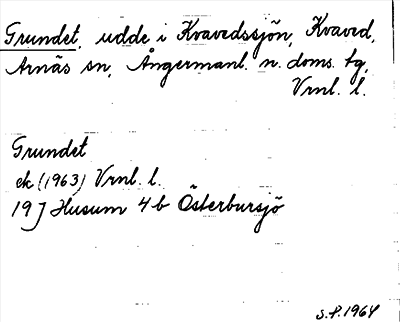 Grundet, udde i Kvavedssjön, Kvaved,
Arnäs sn, Ångermanl. n. doms. tg,
Vrnl. l.
Grundet
ek (1963) Vrnl. l.
19J Husum 4b Österbursjö
S.P. 1964